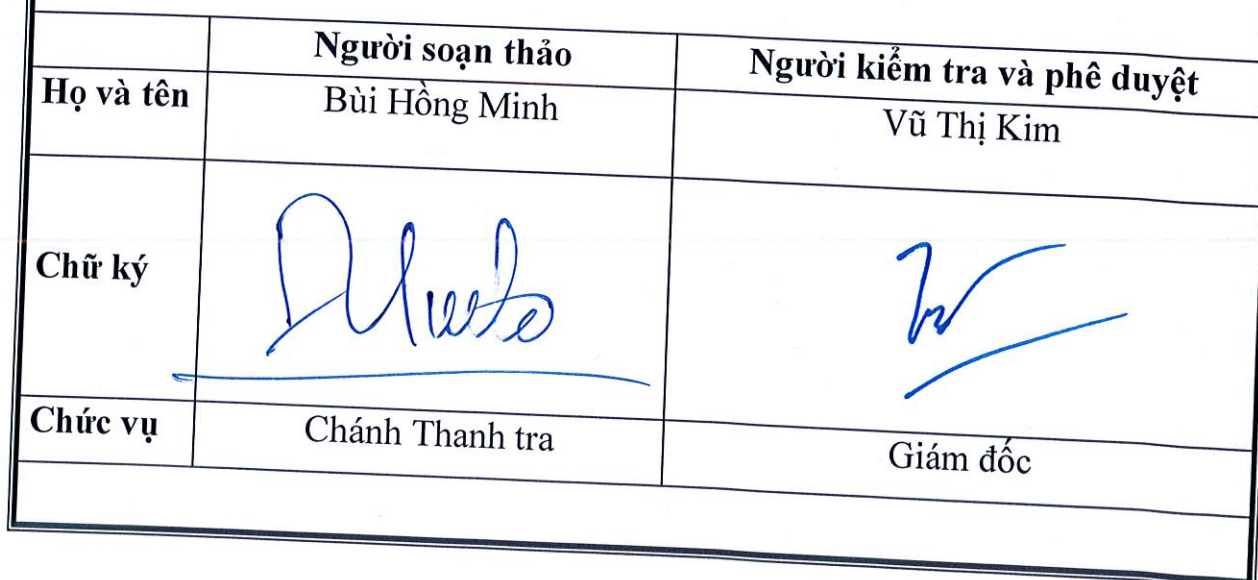 Người soạn thảo Người kiểm tra và phê duyệt
Họ và tên Bùi Hồng Minh Vũ Thị Kim
Chữ ký
Chức vụ Chánh Thanh tra Giám đốc